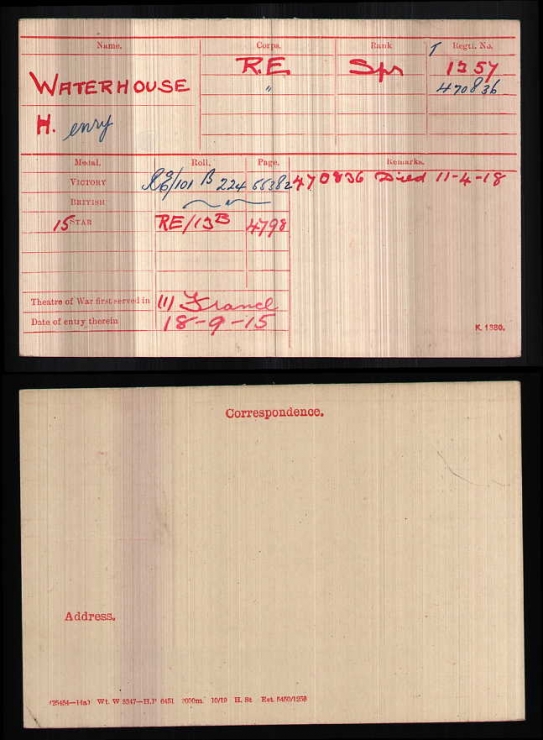 Name. Corps. Rank T Regtl. No.
WATERHOUSE R.E. Spr 1357
" 470836
H. enry
Medal. Roll. Page. Remarks.
VICTORY RE/101 B 224 66382 470836 Died 11-4-18
BRITISH
15 STAR RE/13B 4798
Theatre of War first served in (1) France
Date of entry therein 18-9-15
K. 1380.
Correspondence.
Address.
(25454—14a) Wt. W 5547—H.P 6481 2000m. 10/19 H. St